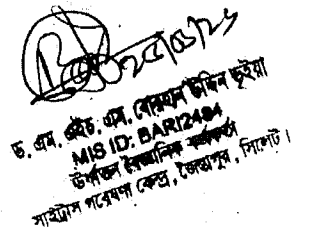 ড. এম. এইচ. এম. বোরহান উদ্দিন ভূইয়া
MIS ID: BARI2494
উর্ধ্বতন বৈজ্ঞানিক কর্মকর্তা
সাইট্রাস গবেষণা কেন্দ্র, জৈন্তাপুর, সিলেট।